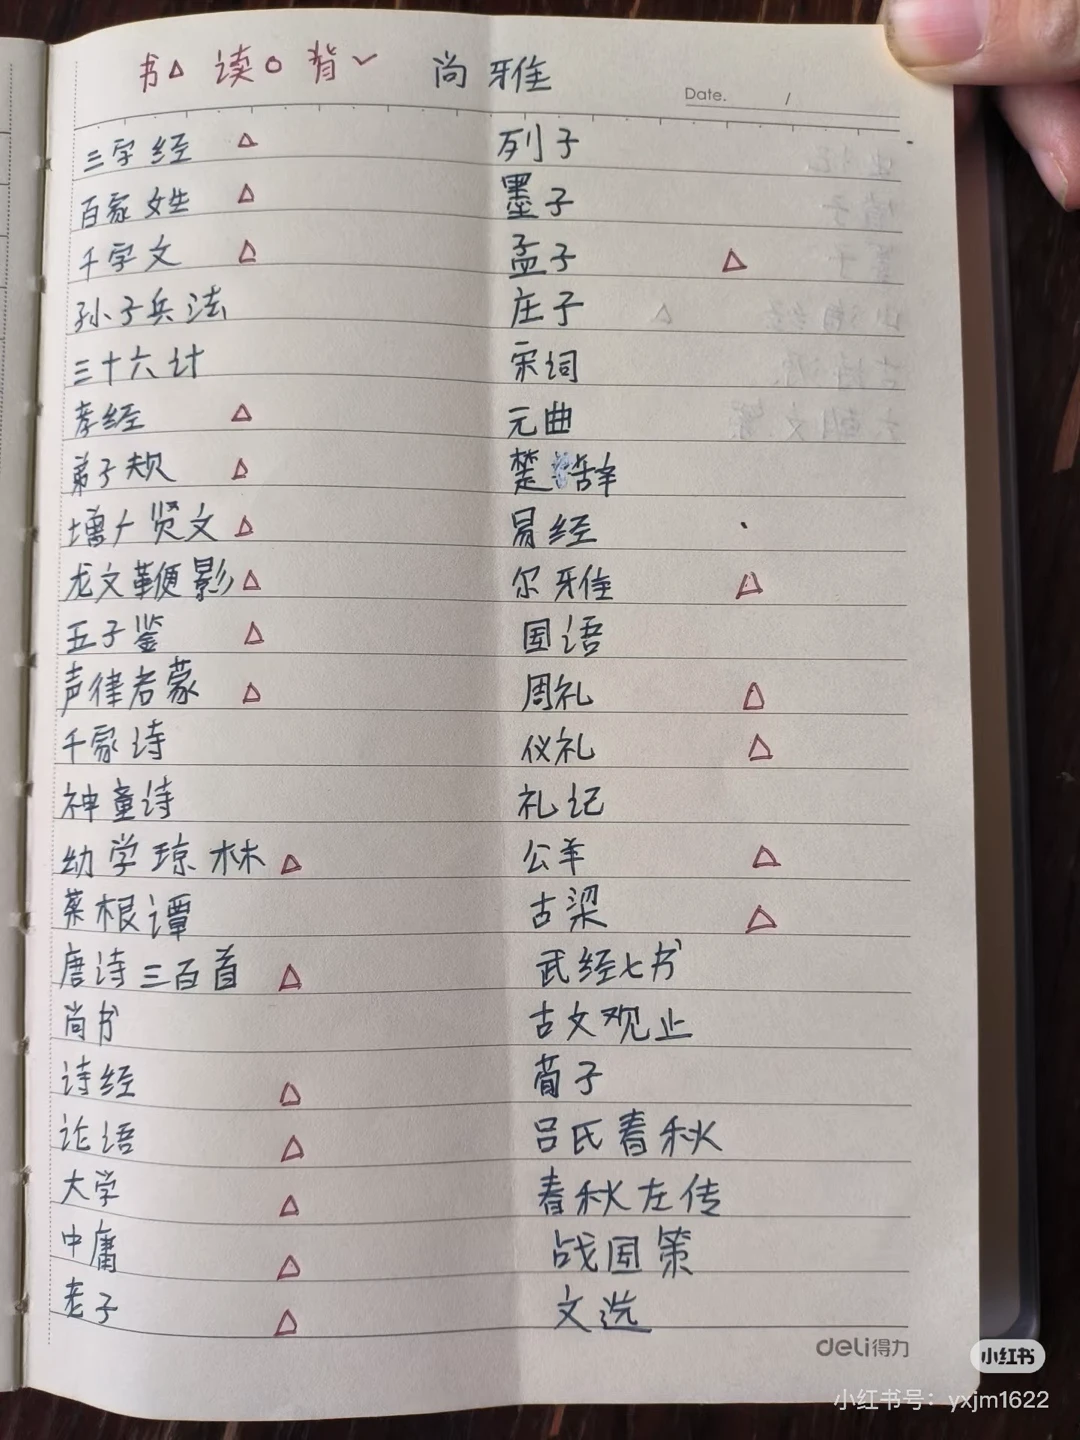 书△ 读○ 背✓ 尚雅
Date. /
三字经 △
百家姓 △
千字文 △
孙子兵法
三十六计
孝经 △
弟子规 △
增广贤文 △
龙文鞭影 △
五子鉴 △
声律启蒙 △
千家诗
神童诗
幼学琼林 △
菜根谭
唐诗三百首 △
尚书
诗经 △
论语 △
大学 △
中庸 △
老子 △
列子
墨子
孟子 △
庄子
宋词
元曲
楚辞
易经
尔雅 △
国语
周礼 △
仪礼 △
礼记
公羊 △
古梁 △
武经七书
古文观止
荀子
吕氏春秋
春秋左传
战国策
文选
deli得力
小红书
小红书号：yxjm1622